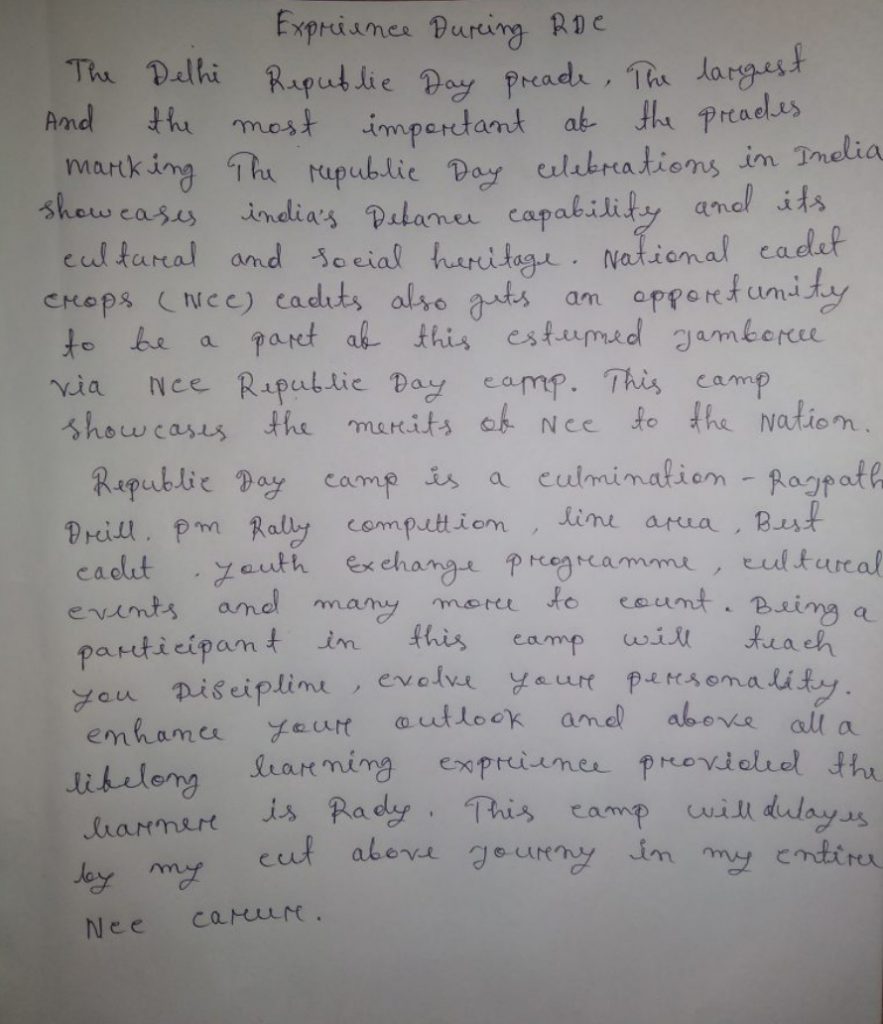 Expreience During RDC
The Delhi Republic Day preade, The largest
And the most important of the preades
marking The republic Day celebreations in India
showcases india's Defance capability and its
cultural and social heritage. National cadet
crops (NCC) cadets also gets an opportunity
to be a part of this esteemed jamboree
via NCC Republic Day camp. This camp
showcases the merits of NCC to the Nation.
Republic Day camp is a culmination - Rajpath
Drill, pm Rally compettion, line area, Best
cadet. Youth Exchange programme, cultural
events and many more to count. Being a
participant in this camp will teach
you Discipline, evolve your personality.
enhance your outlook and above all a
lifelong learning expreience provided the
learner is Rady. This camp will
by my cut above joureny in my entire
NCC careure.